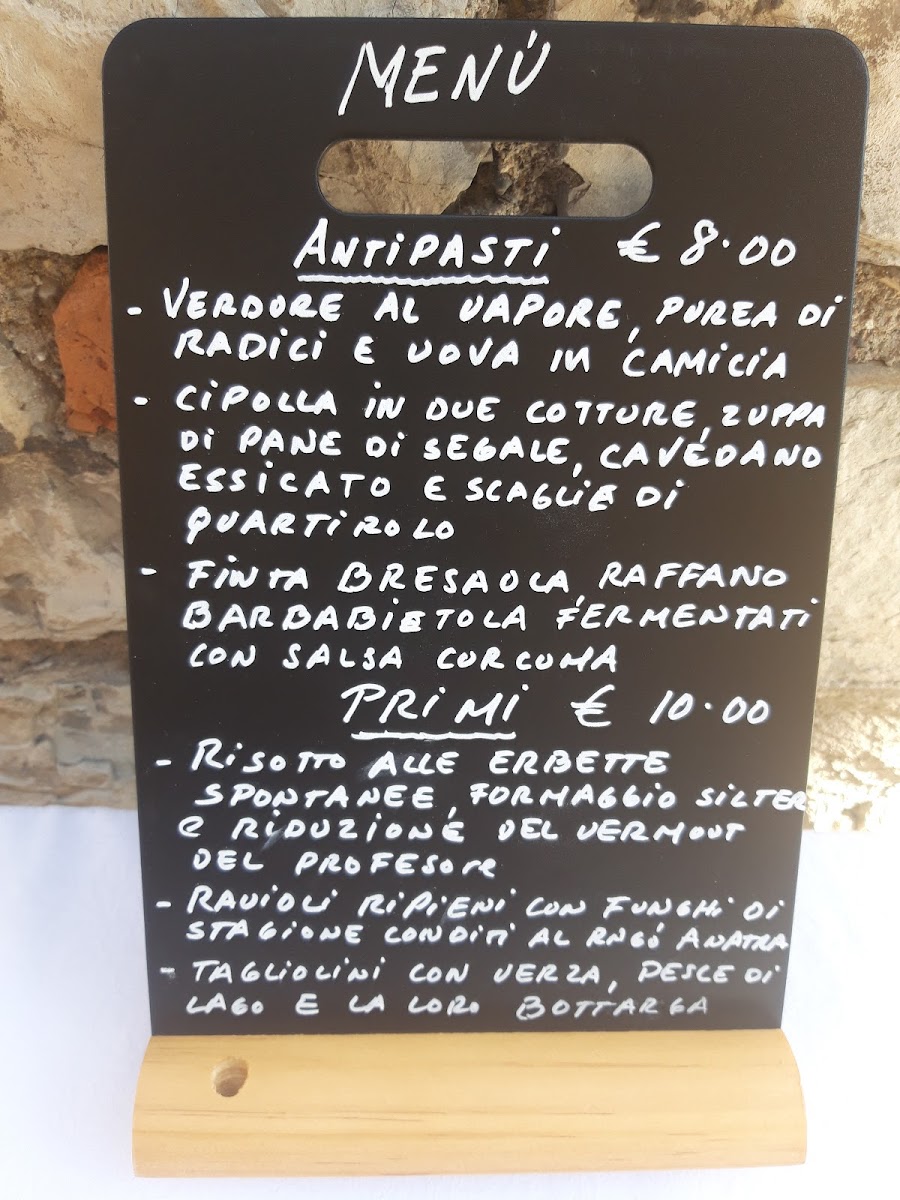 MENÙ
ANTIPASTI € 8.00
- VERDURE AL VAPORE, PUREA DI
RADICI E UOVA IN CAMICIA
- CIPOLLA IN DUE COTTURE, ZUPPA
DI PANE DI SEGALE, CAVÉDANO
ESSICATO E SCAGLIE DI
QUARTIROLO
- FINTA BRESAOLA, RAFFANO
BARBABIETOLA FERMENTATI
CON SALSA CURCUMA
PRIMI € 10.00
- RISOTTO ALLE ERBETTE
SPONTANEE, FORMAGGIO SILTER
E RIDUZIONE DEL VERMOUT
DEL PROFESORE
- RAVIOLI RIPIENI CON FUNGHI DI
STAGIONE CONDITI AL RAGÚ ANATRA
- TAGLIOLINI CON VERZA, PESCE DI
LAGO E LA LORO BOTTARGA